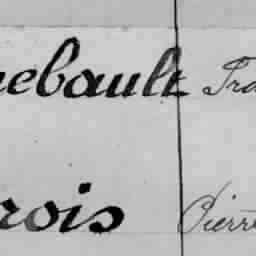 nebault Fra
rois Pierre